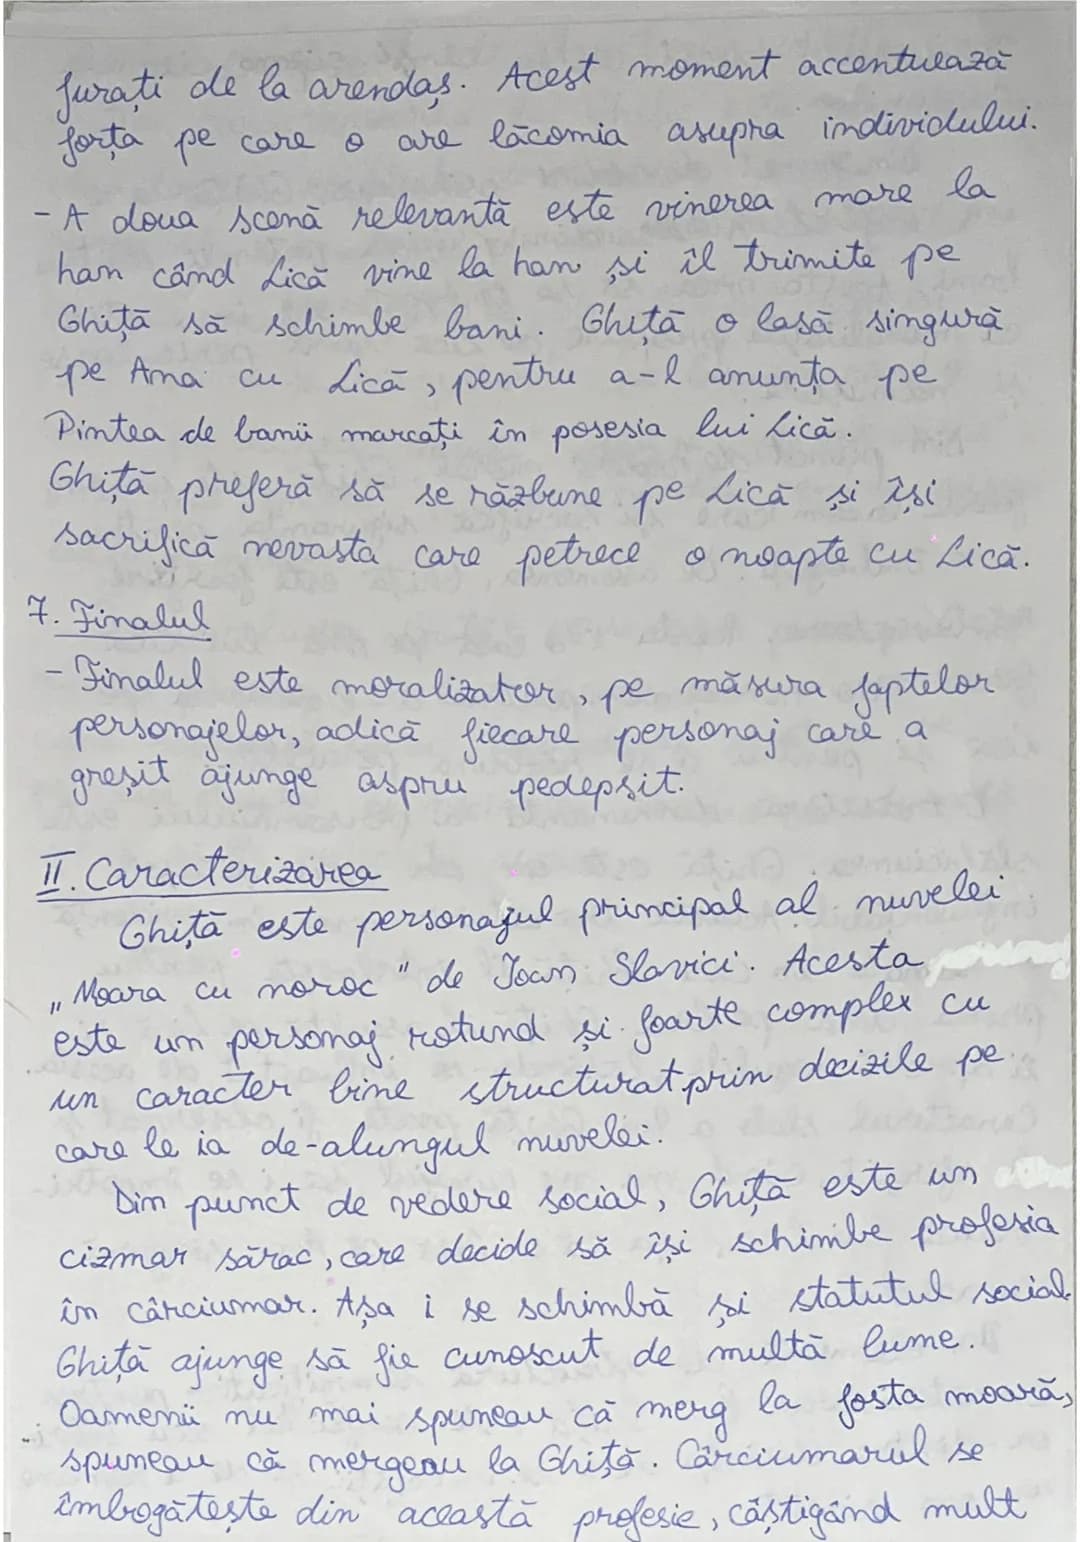 furați de la arendaș. Acest moment accentuează
forța pe care o are lăcomia asupra individului.
- A doua scenă relevantă este vinerea mare la
han când Lică vine la han și îl trimite pe
Ghiță să schimbe bani. Ghiță o lasă singură
pe Ana cu Lică, pentru a-l anunța pe
Pintea de banii marcați în posesia lui Lică.
Ghiță preferă să se răzbune pe Lică și își
sacrifică nevasta care petrece o noapte cu Lică.
7. Finalul
- Finalul este moralizator, pe măsura faptelor
personajelor, adică fiecare personaj care a
greșit ajunge aspru pedepsit.
II. Caracterizarea
Ghiță este personajul principal al nuvelei
„Moara cu noroc" de Ioan Slavici. Acesta
este un personaj rotund și foarte complex cu
un caracter bine structurat prin decizile pe
care le ia de-alungul nuvelei.
Din punct de vedere social, Ghiță este un
cizmar sărac, care decide să își schimbe profesia
în cârciumar. Așa i se schimbă și statutul social.
Ghiță ajunge să fie cunoscut de multă lume.
Oamenii nu mai spuneau că merg la fosta moară,
spuneau că mergeau la Ghiță. Cârciumarul se
îmbogățește din această profesie, câștigând mult